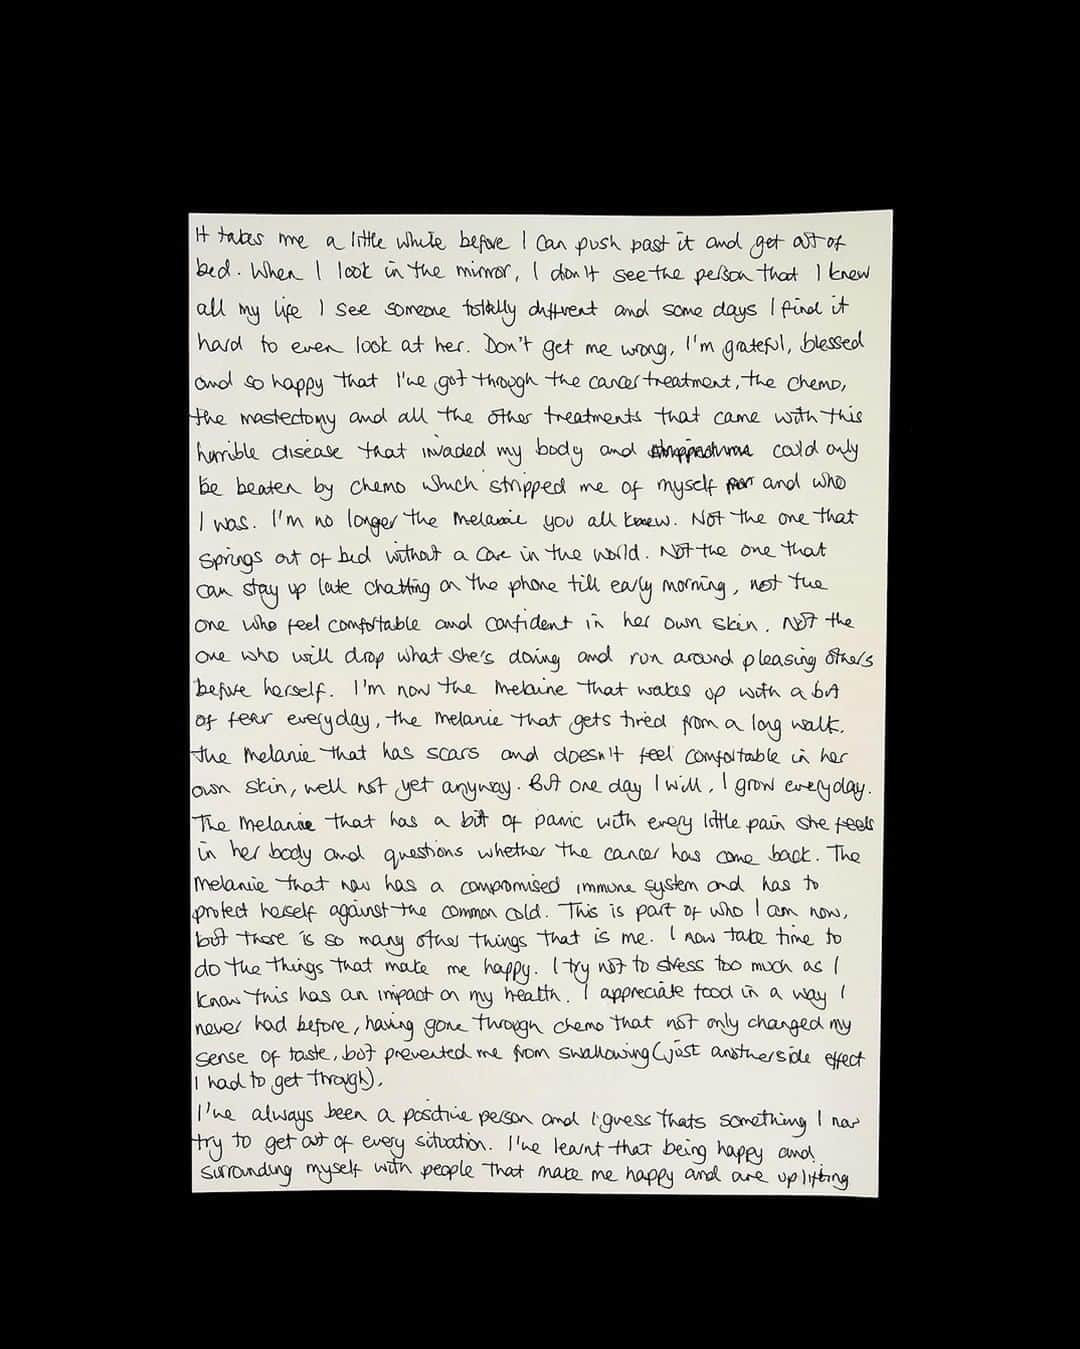 It takes me a little while before I can push past it and get out of
bed. When I look in the mirror, I don't see the person that I knew
all my life I see someone totally different and some days I find it
hard to even look at her. Don't get me wrong, I'm grateful, blessed
and so happy that I've got through the cancer treatment, the chemo,
the mastectomy and all the other treatments that came with this
horrible disease that invaded my body and could only
be beaten by chemo which stripped me of myself and who
I was. I'm no longer the Melanie you all knew. Not the one that
springs out of bed without a care in the world. Not the one that
can stay up late chatting on the phone till early morning, not the
one who feel comfortable and confident in her own skin. Not the
one who will drop what she's doing and run around pleasing others
before herself. I'm now the Melaine that wakes up with a bit
of fear everyday, the Melanie that gets tired from a long walk.
The Melanie that has scars and doesn't feel comfortable in her
own skin, well not yet anyway. But one day I will, I grow everyday.
The Melanie that has a bit of panic with every little pain she feels
in her body and questions whether the cancer has come back. The
Melanie that now has a compromised immune system and has to
protect herself against the common cold. This is part of who I am now,
but there is so many other things that is me. I now take time to
do the things that make me happy. I try not to stress too much as I
know this has an impact on my health. I appreciate food in a way I
never had before, having gone through chemo that not only changed my
sense of taste, but prevented me from swallowing (just another side effect
I had to get through).
I've always been a positive person and I guess thats something I now
try to get out of every situation. I've learnt that being happy and
surrounding myself with people that make me happy and are uplifting